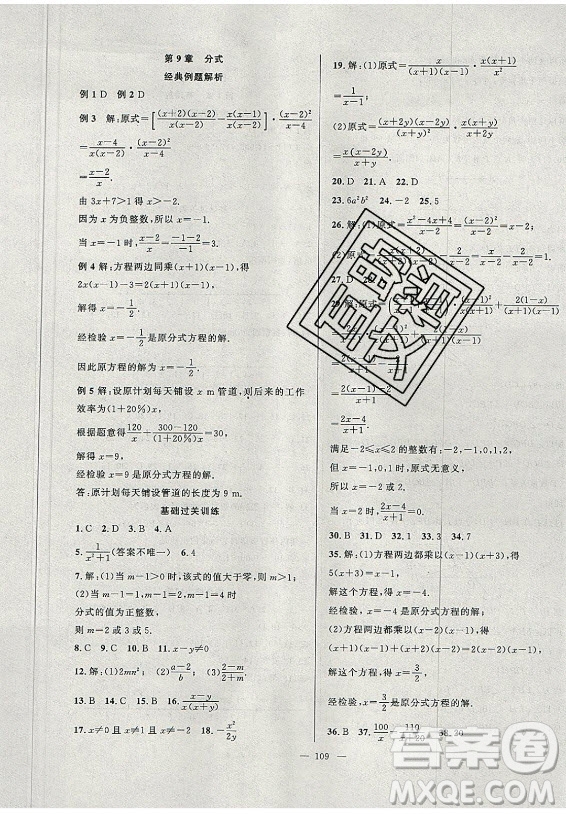 第9章 分式
经典例题解析
例1 D 例2 D
例3 解:原式=[(x+2)(x-2)/x(x-2) - x(x-1)/x(x-2)]·(x-2)²/(x-4)
=(x-4)/x(x-2)·(x-2)²/(x-4)
=(x-2)/x.
由3x+7>1得x>-2.
因为x为负整数,所以x=-1.
当x=-1时,(x-2)/x=(-1-2)/-1=3.
例4 解:方程两边同乘(x+1)(x-1),得
2x(x-1)-3=2(x+1)(x-1).
解得x=-1/2.
经检验x=-1/2是原分式方程的解.
因此原方程的解为x=-1/2.
例5 解:设原计划每天铺设x m管道,则后来的工作
效率为(1+20%)x.
根据题意得120/x+(300-120)/(1+20%)x=30,
解得x=9,
经检验x=9是原分式方程的解.
答:原计划每天铺设管道的长度为9 m.
基础过关训练
1.C 2.D 3.B 4.A
5.1/(x²+1)(答案不唯一) 6.4
7.解:(1)当m-1>0时,该式的值大于零,则m>1.
(2)当m-1=1或m-1=2或m-1=4时,
分式的值为正整数,
则m=2或3或5.
8.C 9.C 10.B 11.x≠0
12.解:(1)2mn² (2)(a-2)/b (3)(m-2)/(m+2)
13.B 14.C 15.C 16.(x-y)/x
17.x≠0且x≠1且x≠-2 18.-x²/2y
19.解:(1)原式=x/(x+1)(x-1)·(x+1)/x
=1/(x-1).
(2)原式=(x+2y)(x-2y)/(x+y)²·(x+y)/x(x+2y)
=(x-2y)/x(x+y).
20.D 21.A 22.D
23.6a²b² 24.-2 25.5
26.解:(1)原式=
(2)原式=
27.D 28.
29.解:原式=
=2(x-1)/(x+1)
=2(x-2)/(x+1).
满足-2≤x≤2的整数有:-2,-1,0,1,2,
所以x=0或-2.
当x=0时,原式=(2×0-4)/(0+1)=-4.
30.B 31.D 32.-1 33.4 34.C
35.解:(1)方程两边都乘以(x-1)(x+3),得
5(x+3)=x-1.
解这个方程,得x=-4.
经检验,x=-4是原分式方程的解.
(2)方程两边都乘以(x-2)(x-1),得
x(x-1)=(x-2)(x-1)+(x-2).
解这个方程,得x=
经检验,x=3/2是原分式方程的解.
36.B 37.
109
答案圈
MXQE.COM